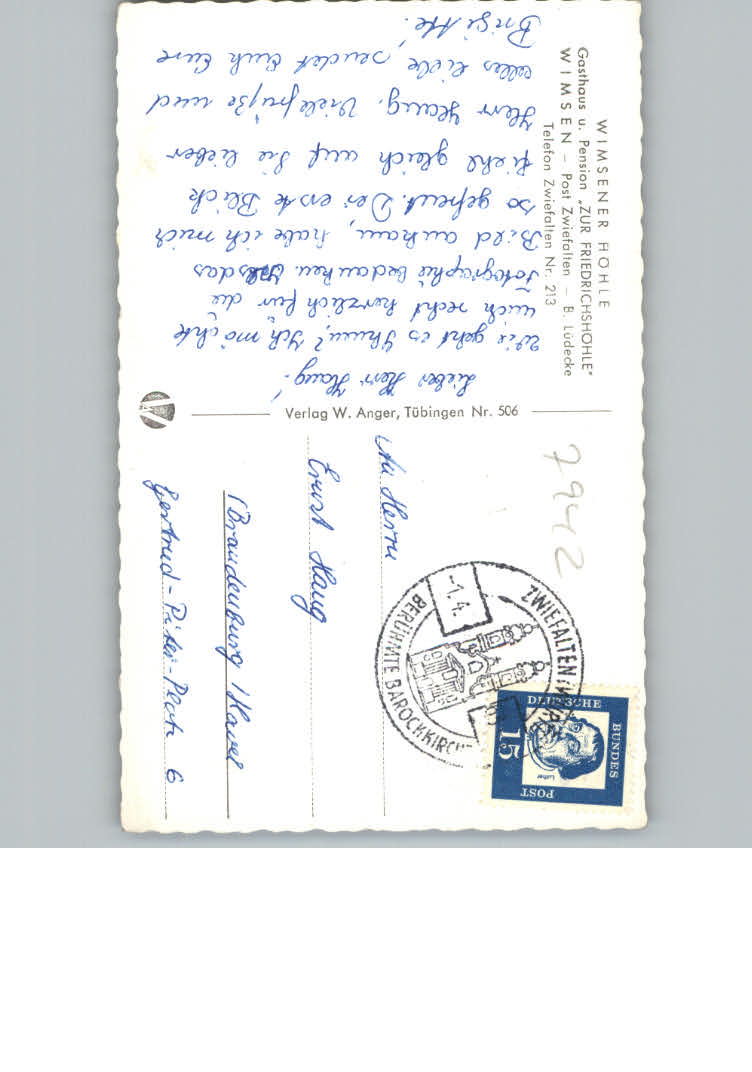 WIMSENER HÖHLE
Gasthaus u. Pension „ZUR FRIEDRICHSHÖHLE"
WIMSEN – Post Zwiefalten – B. Lüdecke
Telefon Zwiefalten Nr. 213
Lieber Herr Haug!
Wie geht es Ihnen? Ich möchte
mich recht herzlich für die
Fotographie bedanken. Als das
Bild ankam, habe ich mich
so gefreut. Der erste Blick
fiehl gleich auf Sie lieber
Herr Haug. Viele Grüße und
alles Liebe, sendet Euch Eure
Brigitte.
Verlag W. Anger, Tübingen Nr. 506
7942
ZWIEFALTEN
BERÜHMTE BAROCKKIRCHE
-1.4.
DEUTSCHE
BUNDES
POST
15
Luther
An Herrn
Ernst Haug
(Brandenburg / Havel
Gertrud-Piter-Platz 6